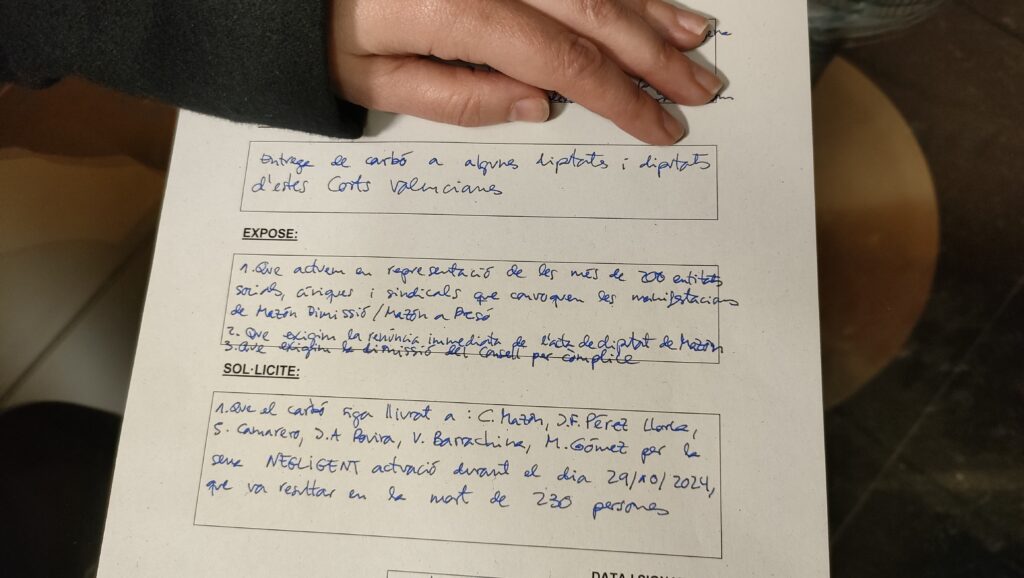 Entrega de carbó a algunes diptats i diputats
d'estes Corts Valencianes
EXPOSE:
1. Que actuem en representació de les més de 200 entitats
socials, cíviques i sindicals que convoquen les manifestacions
de Mazón Dimissió / Mazón a Presó
2. Que exigim la renúncia immediata de l'acta de diptat de Mazón
3. Que exigim la dimissió del Consell per cómplice
SOL·LICITE:
1. Que el carbó siga llivrat a: C. Mazón, J.F. Pérez Llorca,
S. Camarero, J.A Rovira, V. Barrachina, M. Gómez per la
seua NEGLIGENT actvació durant el dia 29/10/2024,
que va resultar en la mort de 230 persones